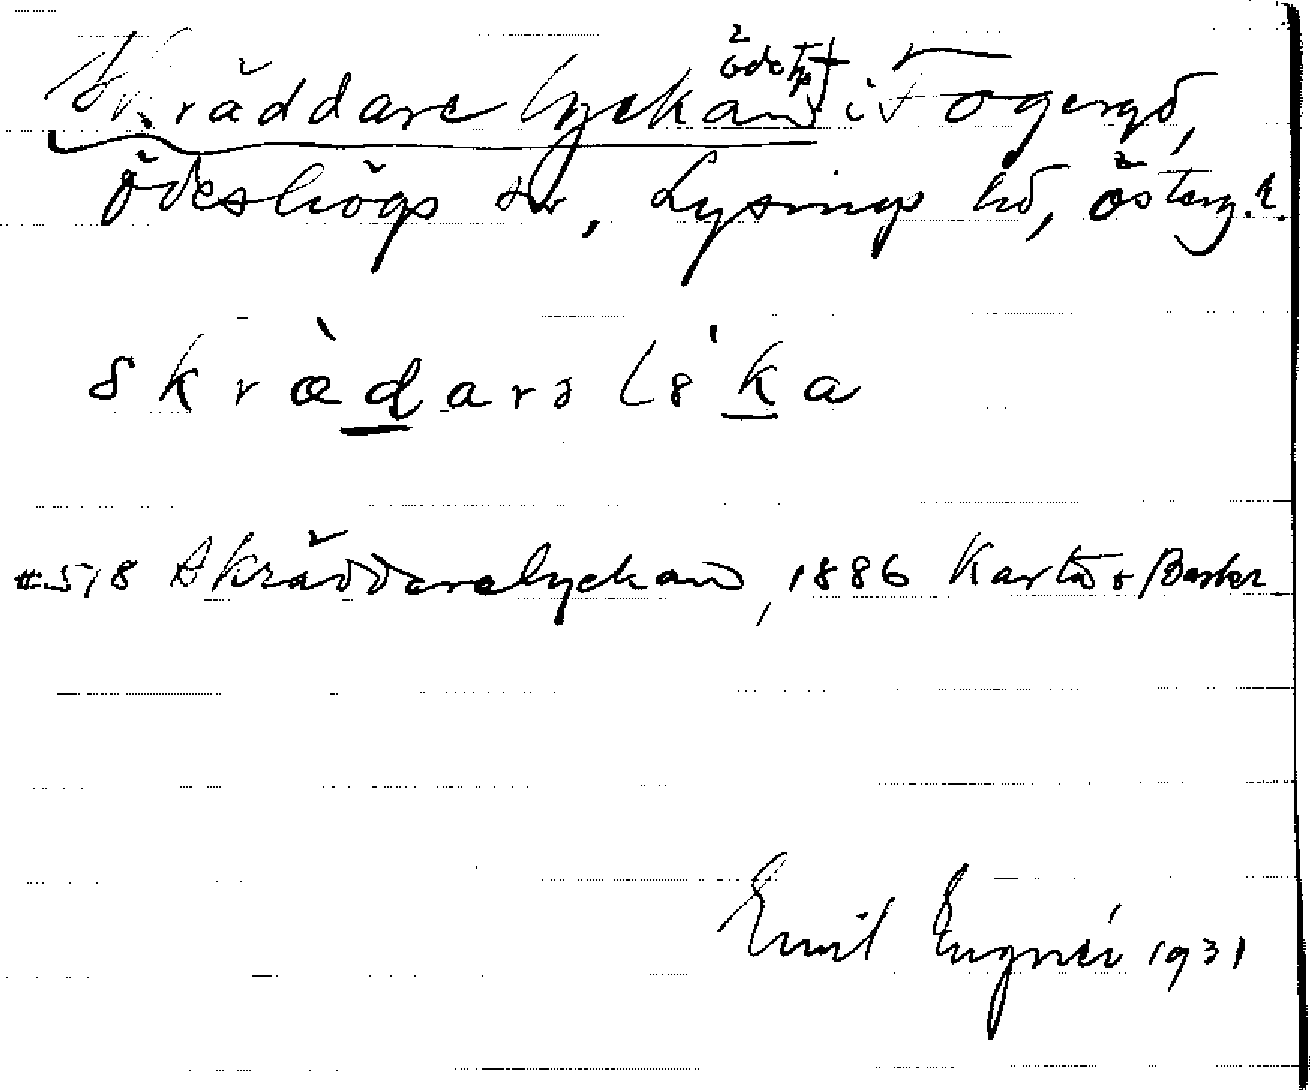 Skräddarelyckan ödetp i Fogeryd,
Ödeshögs sn, Lysings hd, Österg. l.
skrædarə lɵka
#518 Skräddarelyckan, 1886 Karta o Beskr
Emil Lugnéi 1931